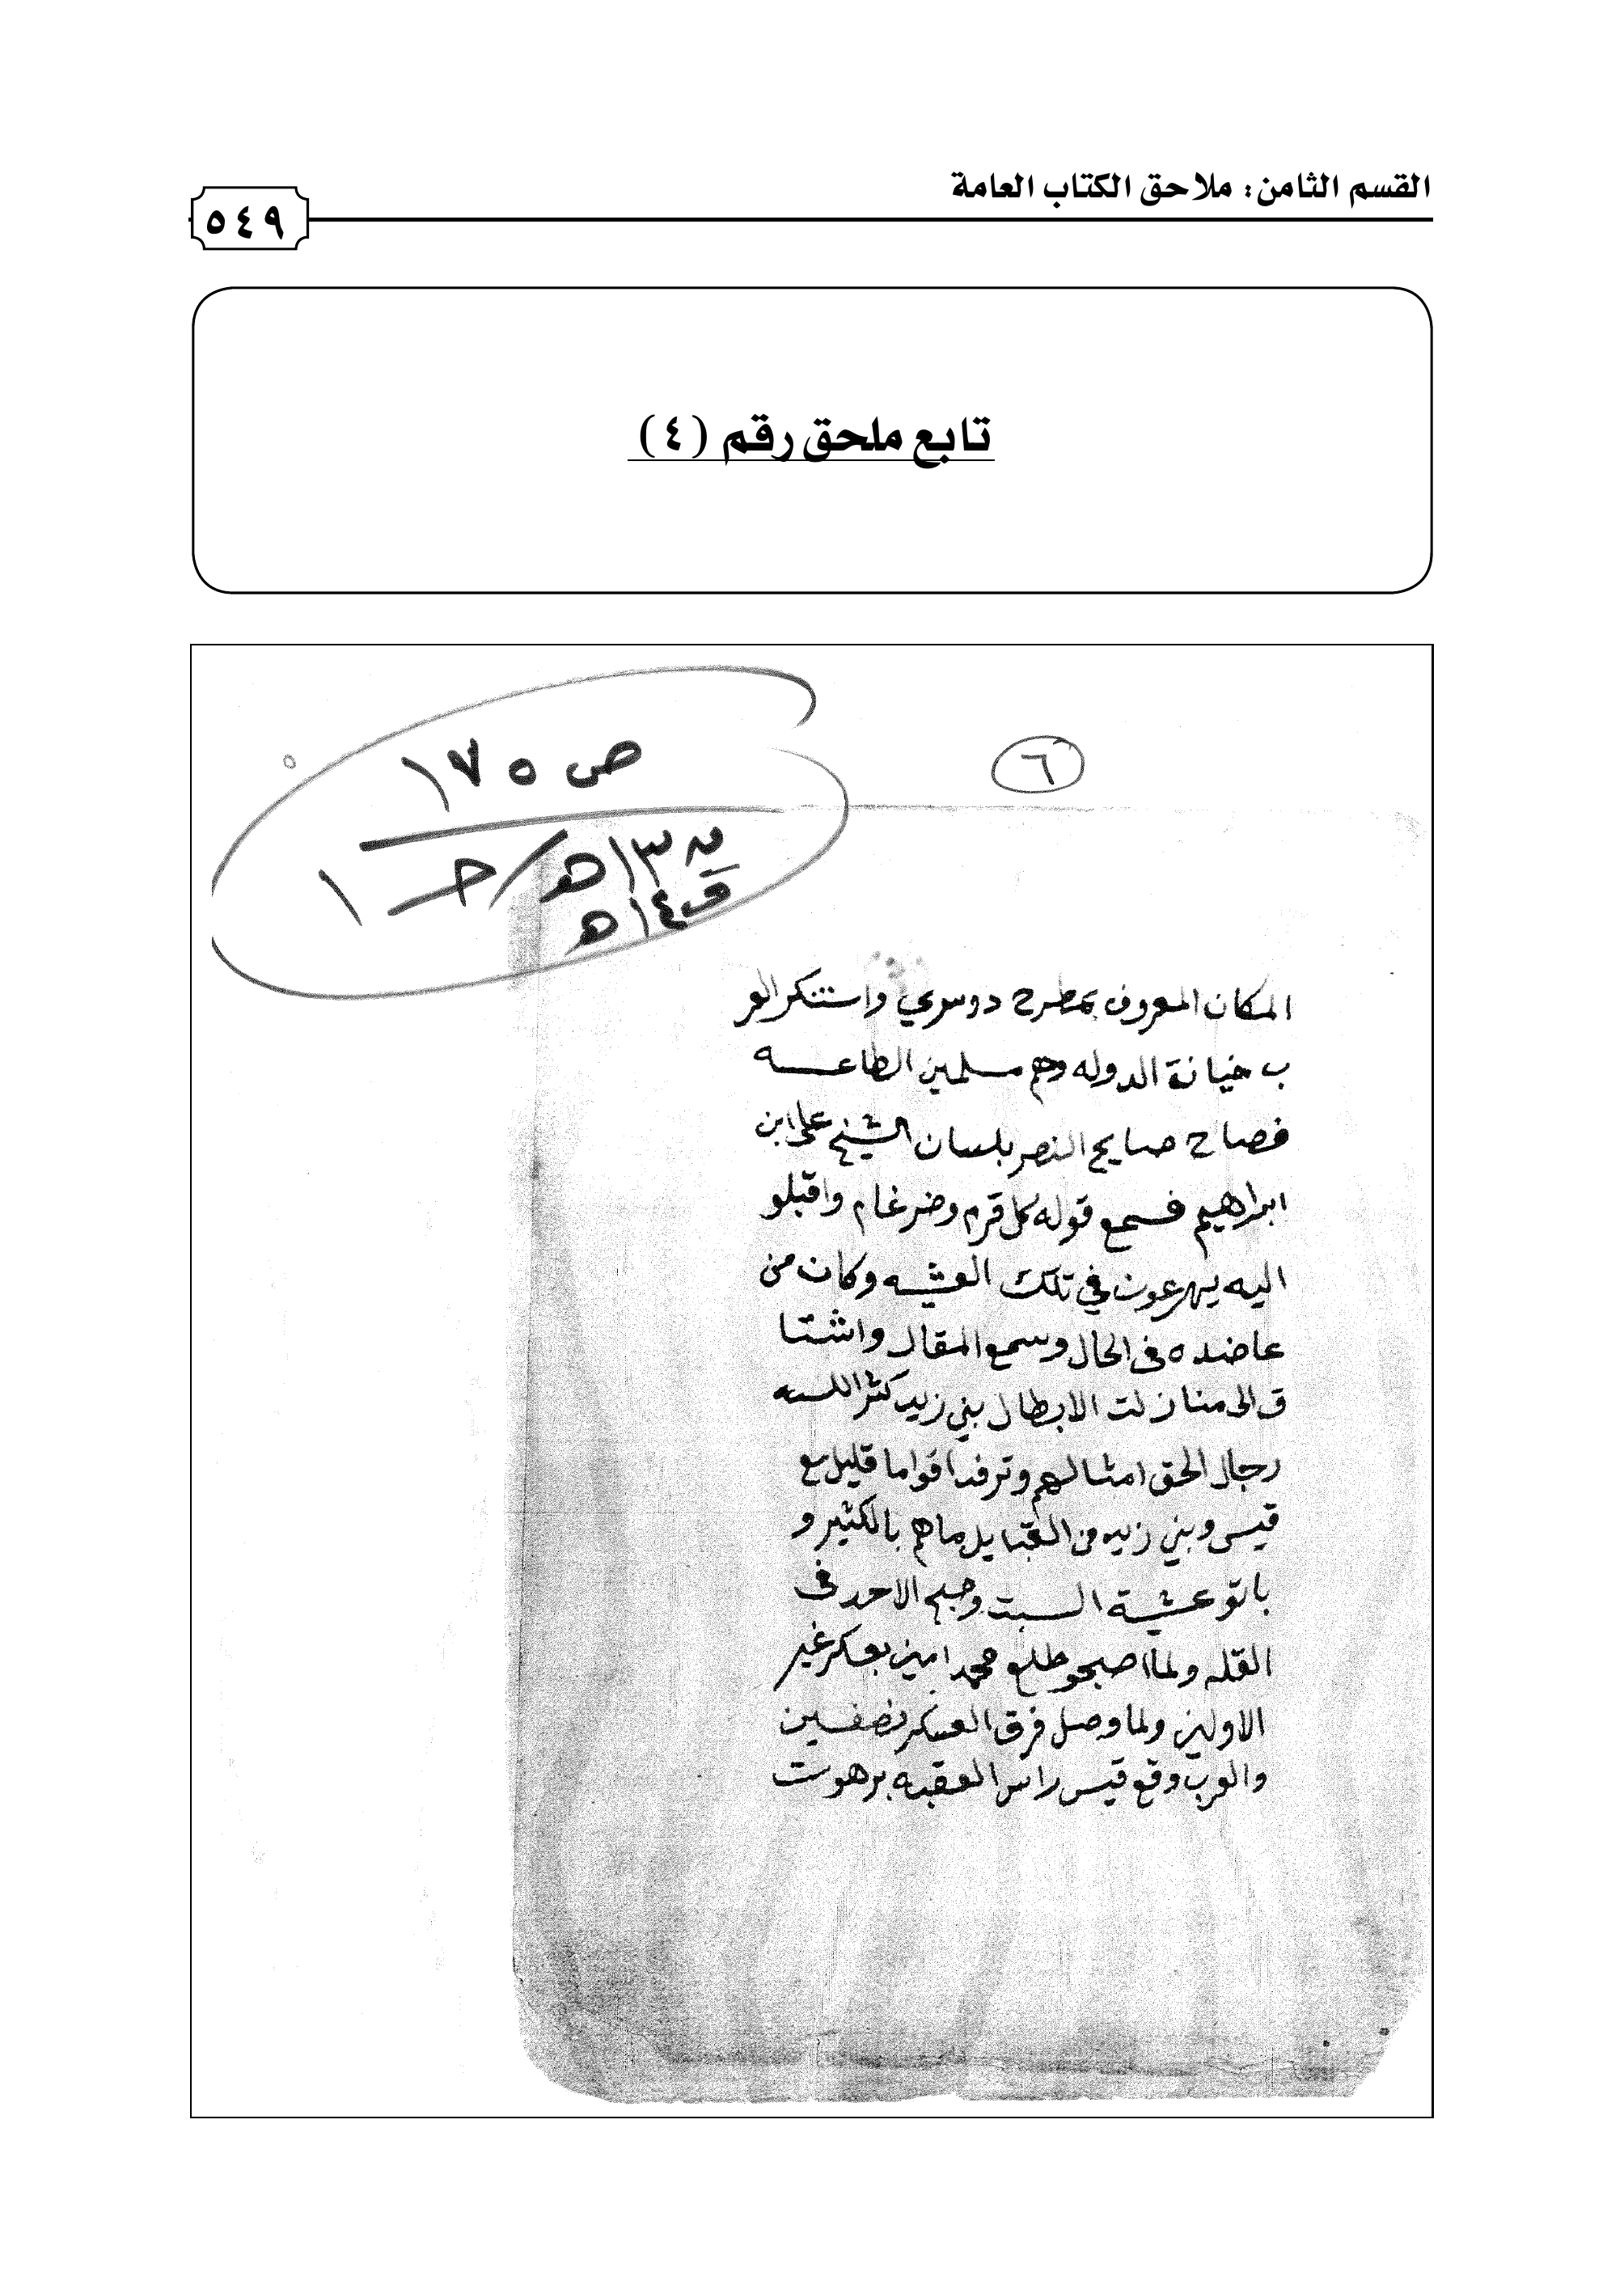 القسم الثامن: ملاحق الكتاب العامة
٥٤٩
تابع ملحق رقم (٤)
ص ١٧٥
١٣هـ / حـ ١
ق ١٤ هـ
٦
المكان المعروف بمطرح دوسري واستنكر العر
ب خيانة الدوله وهم مسلمين الطاعه
فصاح صايح النصر بلسان الشيخ علي ابن
ابراهيم فسمع قوله كل قرم وضرغام واقبلو
اليه يهرعون في تلك العشيه وكان من
عاضده في الحال وسمع المقال واشتا
ق الى منازلت الابطال بني زيد كثر الله
رجال الحق امثالهم وترفد اقواما قليل مع
قيس وبني زيد من القبايل ماهم بالكثير و
باتو عشية السبت وصبح الاحد في
القله ولما اصبحو طلع محمد امين بعسكر غير
الاولين ولما وصل فرق العسكر نصفين
والعرب وقع قيس راس العقبه برهوت